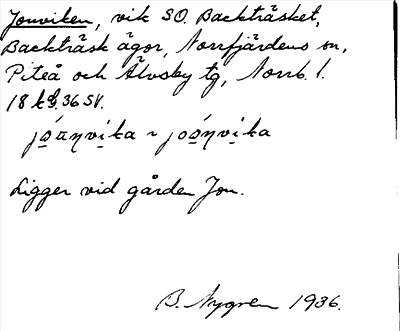 Jonviken, vik SO. Backträsket,
Backträsk ägor, Norrfjärdens sn,
Piteå och Älvsby tg, Norrb. l.
36 SV.
Ligger vid gården Jon.
B. Nygren 1936.